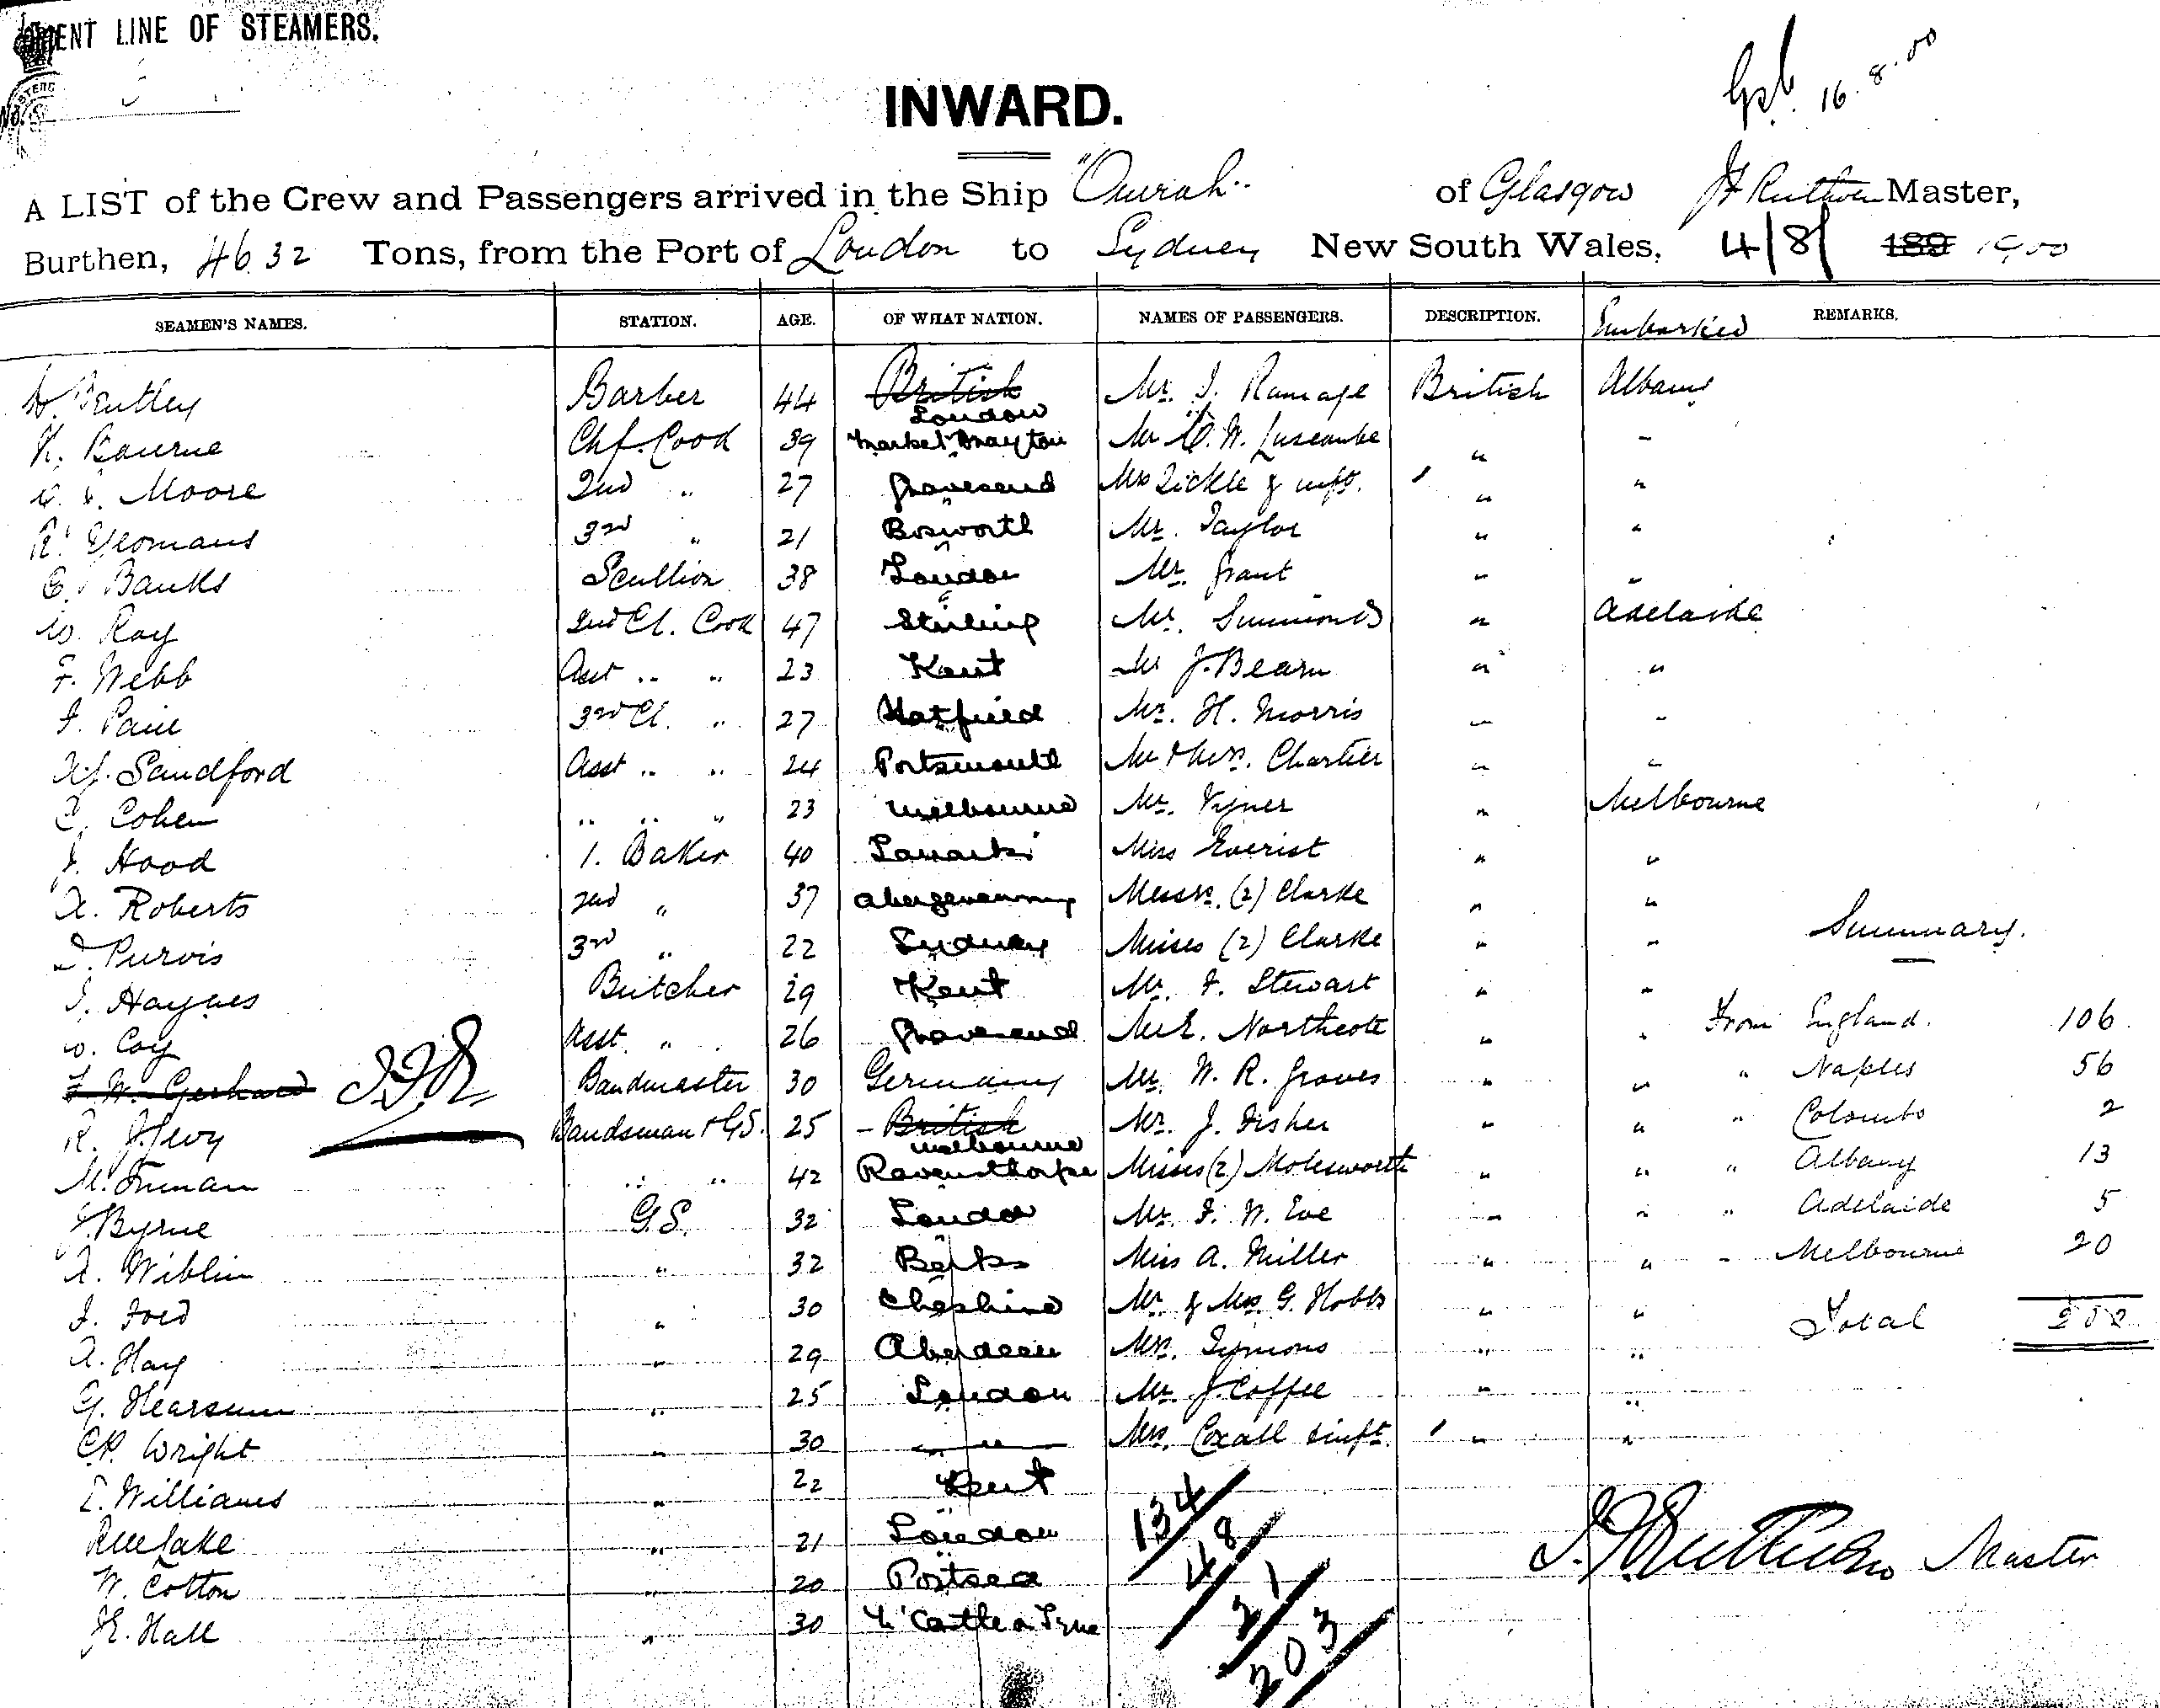 ORIENT LINE OF STEAMERS.
16.8.00
No.
INWARD.
A LIST of the Crew and Passengers arrived in the Ship "Omrah" of Glasgow J F Ruthven Master,
Burthen, 4632 Tons, from the Port of London to Sydney New South Wales, 4/8/ 189 1900
SEAMEN'S NAMES. STATION. AGE. OF WHAT NATION. NAMES OF PASSENGERS. DESCRIPTION. Embarked REMARKS.
Bentley Barber 44 British London Mr. J. Ramage British Albany
Bourne Chf. Cook 39 Market Drayton Mr W. Luscombe " "
Moore 2nd " 27 Gravesend Mrs Tickle & inft. " "
R. Yeomans 3rd " 21 Bosworth Mr. Taylor " "
E. Banks Scullion 38 London Mr. Grant " "
W. Ray 2nd Cl. Cook 47 Stirling Mr. Simmonds " Adelaide
F. Webb Asst " " 23 Kent Mr J. Bearn " "
Paul 3rd Cl. " 27 Hatfield Mr. H. Morris " "
Sandford Asst " " 24 Portsmouth Mr & Mrs. Chartier " "
Cohen " " " 23 Melbourne Mr. Vyner " Melbourne
J. Hood 1. Baker 40 Lanark Miss Everist " "
A. Roberts 2nd " 37 Abergavenny Messrs. (2) Clarke " "
Purvis 3rd " 22 Sydney Misses (2) Clarke " " Summary.
Haynes Butcher 29 Kent Mr. F. Stewart " "
W. Coy Asst. " 26 Gravesend Mr E. Northcote " " From England. 106
F W. Gerhard Bandmaster 30 Germany Mr. W. R. Groves " " " Naples 56
R. J. Levy Bandsman & G.S. 25 British Melbourne Mr. J. Fisher " " " Colombo 2
M. Inman " " 42 Ravensthorpe Misses (2) Molesworth " " " Albany 13
Byrne G.S. 32 London Mr. F. W. Eve " " " Adelaide 5
A. Wiblin " 32 Berks Miss A. Miller " " " Melbourne 20
Ford " 30 Cheshire Mr. & Mrs. G. Hobbs " " Total 202
A. Hay " 29 Aberdeen Mrs. Symons " "
G. Hearsum " 25 London Mr. J. Coffee " "
Wright " 30 " Mrs. Coxall & inft. " "
Williams " 22 Kent
Lake " 21 London
W. Cotton " 20 Portsea
Hall " 30 N'Castle o Tyne
134
48
21
203
J. F. Ruthven Master